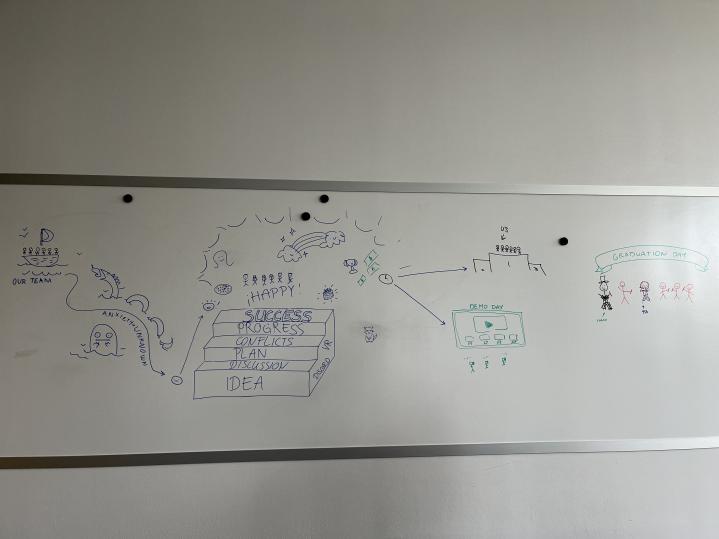 OUR TEAM
ANXIETY+UNKNOWN
¡HAPPY!
SUCCESS
PROGRESS
CONFLICTS
PLAN
DISCUSSION
IDEA
DISCORD VR
US
1
DEMO DAY
GRADUATION DAY